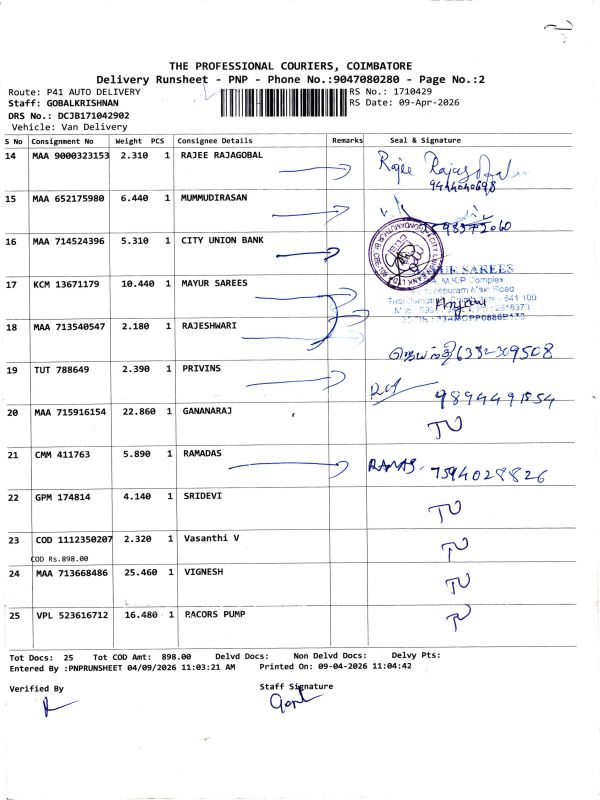 THE PROFESSIONAL COURIERS, COIMBATORE
Delivery Runsheet - PNP - Phone No.:9047080280 - Page No.:2
Route: P41 AUTO DELIVERY RS No.: 1710429
Staff: GOBALKRISHNAN RS Date: 09-Apr-2026
DRS No.: DCJB171042902
Vehicle: Van Delivery
S No Consignment No Weight PCS Consignee Details Remarks Seal & Signature
14 MAA 9000323153 2.310 1 RAJEE RAJAGOBAL Rajee
9444040698
15 MAA 652175980 6.440 1 MUMMUDIRASAN
16 MAA 714524396 5.310 1 CITY UNION BANK
17 KCM 13671179 10.440 1 MAYUR SAREES SAREES
M.K.P. Complex
18 MAA 713540547 2.180 1 RAJESHWARI 6382309508
19 TUT 788649 2.390 1 PRIVINS
20 MAA 715916154 22.860 1 GANANARAJ
21 CMM 411763 5.890 1 RAMADAS 7594028826
22 GPM 174814 4.140 1 SRIDEVI
23 COD 1112350207 2.320 1 Vasanthi V
COD Rs.898.00
24 MAA 713668486 25.460 1 VIGNESH
25 VPL 523616712 16.480 1 RACORS PUMP
Tot Docs: 25 Tot COD Amt: 898.00 Delvd Docs: Non Delvd Docs: Delvy Pts:
Entered By :PNPRUNSHEET 04/09/2026 11:03:21 AM Printed On: 09-04-2026 11:04:42
Verified By Staff Signature